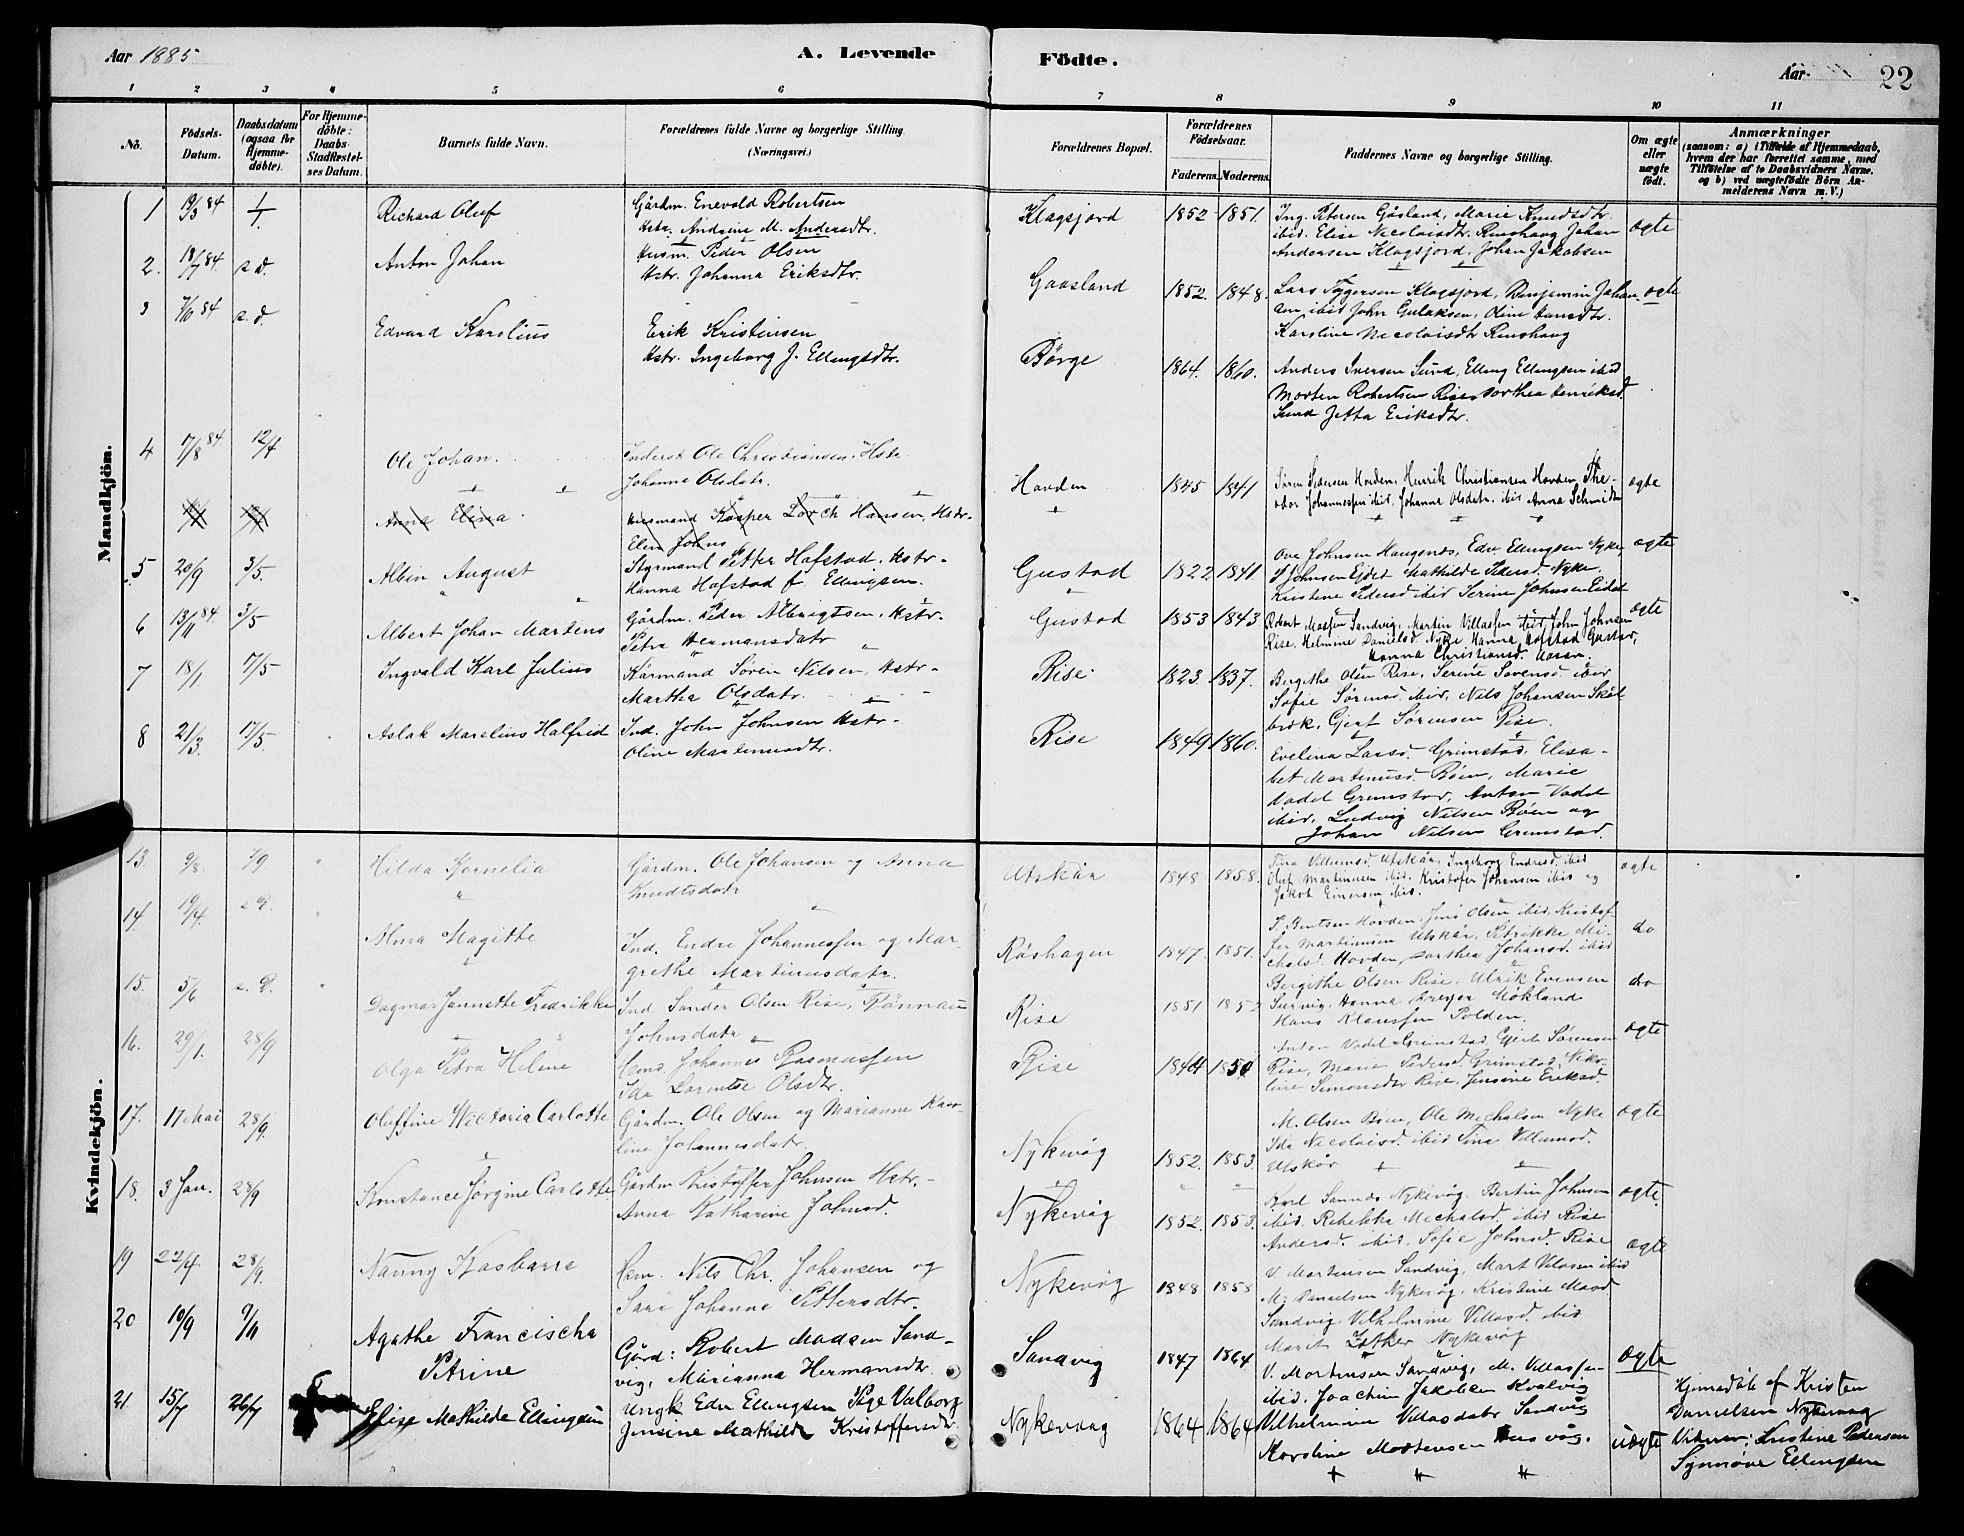 Aar 1885
A. Levende
Födte.
Aar
22
1 2 3 4 5 6 7 8 9 10 11
No.
Födsels-
Datum.
Daabsdatum
(ogsaa for
Hjemme-
döbte).
For Hjemme-
döbte:
Daabs-
Stadfæstel-
ses Datum.
Barnets fulde Navn.
Forældrenes fulde Navne og borgerlige Stilling.
(Næringsvei.)
Forældrenes Bopæl.
Forældrenes
Födselsaar.
Faderens. Moderens.
Faddernes Navne og borgerlige Stilling.
Om ægte
eller
uægte
födt.
Anmærkninger
(saasom: a) i Tilfælde af Hjemmedaab,
hvem der har forrettet samme, med
Tilföielse af to Daabsvidners Navne.
og b) ved uægtefödte Börn An-
melderens Navn m. V.)
Mandkjön.
1 19/3 84 1/1 Richard Oluf
Gårdm. Enevold Robertsen
Hstr. Andrine M. Andersdtr.
Klagsjord 1852 1851.
Ing. Petersen Gåsland, Marie Knudsdtr.
ibid. Elise Nicolaisdtr. Rinshaug Johan
Andersen Klagsjord, Johan Jakobsen
ægte
2. 18/7 84. s.d. Anton Johan
Husm. Peder Olsen
Hstr. Johanna Eriksdtr.
Gaasland 1852. 1848.
Lars Tygersen Klagsjord, Benjamin Johan
sen ibid John Gulaksen, Oline Hansdtr.
Karoline Nicolaisdtr Rinshaug
ægte
3 7/6 84 s.d. Edvard Karolius
Erik Kristensen
Hstr. Ingeborg J. Ellingsdtr.
Börge 1864. 1860.
Anders Iversen Sund, Elling Ellingsen ibid
Morten Robertsen Rise Dorthea Henriksd.
Sund Jetta Eriksdtr.
4 17/8 84. 12/4 Ole Johan.
Inderst Ole Christiansen, Hstr
Johanna Olsdatr.
Hovden 1845 1841
Sören Pedersen Hovden, Henrik Christiansen Hovden, The-
odor Johannessen ibid, Johanne Olsdatr. ibid Anna Schmidt
ægte
Anna Elina
Husmand Kasper Lorch Hansen, Hstr.
Elen Johns
5 20/9 3/5. Albin August
Styrmand Petter Hofstad, Hstr.
Hanna Hofstad f. Ellingsen.
Gustad 1822 1841
Ove Johnsen Haugenes, Edv Ellingsen Nyke,
P Johnsen Ejdet Mathilde Pedersd. Nyke.
Kristene Pedersd ibid Serine Johnsen Eidet
ægte
6 13/11 84. 3/5 Albert Johan Martens
Gårdm. Peder Albrigtsen, Hstr.
Petra Hermansdatr
Gustad 1853 1843
Robert Madsen Sandvig, Martin Villassen ibid, John Johnsen
Rise, Helmine Danielsd Nyke, Hanna Hofstad Gustav,
Hanna Christiansd.
ægte
7 18/1 17/5 Ingvald Karl Julius
Kårmand Sören Nilsen, Hstr.
Martha Olsdatr.
Rise 1823. 1837.
Bergithe Olsen Rise, Serine Sörensd ibid
Sofie Sörensd. ibid, Nils Johansen Skål
brok, Gert Sörensen Rise.
8 21/3. 17/5. Aslak Marelius Halfrid
Ind. John Johnsen Hstr.
Oline Martinusdtr.
Rise 1849 1860.
Evelina Larsd. Grimstad, Elisa-
bet Martinusd. Böen, Marie
Vadel Grimstad, Anton Vadel
ibid, Ludvig Nilsen Böen og
Johan Nilsen Grimstad.
Kvindekjön.
13. 9/8. Hilda Kornelia
Gårdm. Ole Johansen og Anna
Knudtsdatr
Utskår 1848 1858.
Tina Villumsd. Utskår, Ingeborg Endresd. ibid
Oluf Martinusen ibid. Kristofer Johansen ibid og
Jakob Einersen ibid.
ægte
14 19/4. s.d. Alma Magitte
Ind. Endre Johannessen og Mar-
grethe Martinusdatr.
Råshagen 1847. 1851.
P. Bentsen Hovden. Jens Olsen ibid. Kristof-
fer Martinusen Utskår, Petrikke Mi-
chelsd. Hovden, Dorthea Johansd. ibid
do
15. 5/6 s.d. Dagmar Jannette Fredrikke
Ind. Sander Olsen Rise, Rönnau
Johnsdatr
Rise 1851 1852
Bergithe Olsen Rise, Ulrik Evensen
Survig, Hanna Dreyer Mökland
Hans Klaussen Polden.
do
16. 29/1. 28/9 Olga Petra Helene
Johannes Rasmussen
Ida Lorntse Olsdtr.
Rise 1844 1854
Anton Vadel Grimstad Gjert Sörensen
Rise, Marie Pedersd. Grimstad, Niko-
line Simonsdtr Rise, Jensine Eriksd.
ægte
17. 17 Mai 28/9. Oluffine Wictoria Carlotte
Gårdm. Ole Olsen og Marianne Karo-
line Johannesdatr
Nykevåg 1852. 1853.
M. Olsen Böen, Ole Michalsen Nyke
Ida Nicolaisd. ibid Tina Villumsd.
Utskår
ægte
18. 3 Jan. 28/9 Konstance Jörgine Carlotte
Gårdm Kristoffer Johnsen Hstr.
Anna Katharine Johnsd.
Nykevåg 1852. 1853.
Karl Sannes Nykevåg. Bertin Johnsen
ibid. Rebekka Michalsd. ibid Rise
Andersd. ibid. Sofie Johnsd. Rise
ægte.
19 22/4 28/9. Nanny Kasbarra
Nils Chr. Johansen og
Sara Johanna Pettersdtr.
Nykevåg 1848 1858
V. Mortensen Sandvig, Mart Vilasen ibid
M. Danielsen Nykevåg, Kristine Maad
Sandvig, Vilhelmine Villasd. ibid
Marit Nykevåg
ægte
20 10/9 9/11 Agathe Francischa
Petrine
Gård: Robert Madsen Sand-
vig, Marianna Hermansdtr.
Sandvig 1847 1864
V. Mortensen Sandvig, M. Villassen
ibid. Joachim Jakobsen Kvalvig
Vilhelmine Villasdatr Sandvig
ægte
21. 15/7 26/7 Elise Mathilde Ellingsen
Ungk Edv Ellingsen Pige Valborg
Jensine Mathilde Kristoffersdtr
Nykevaag 1864 1864
Karoline Mortensen
uægte
Hjemedöbt af Kristen
Danielsen Nykevaag
Vidner: Kristine Pedersen
Synnöve Ellingsen